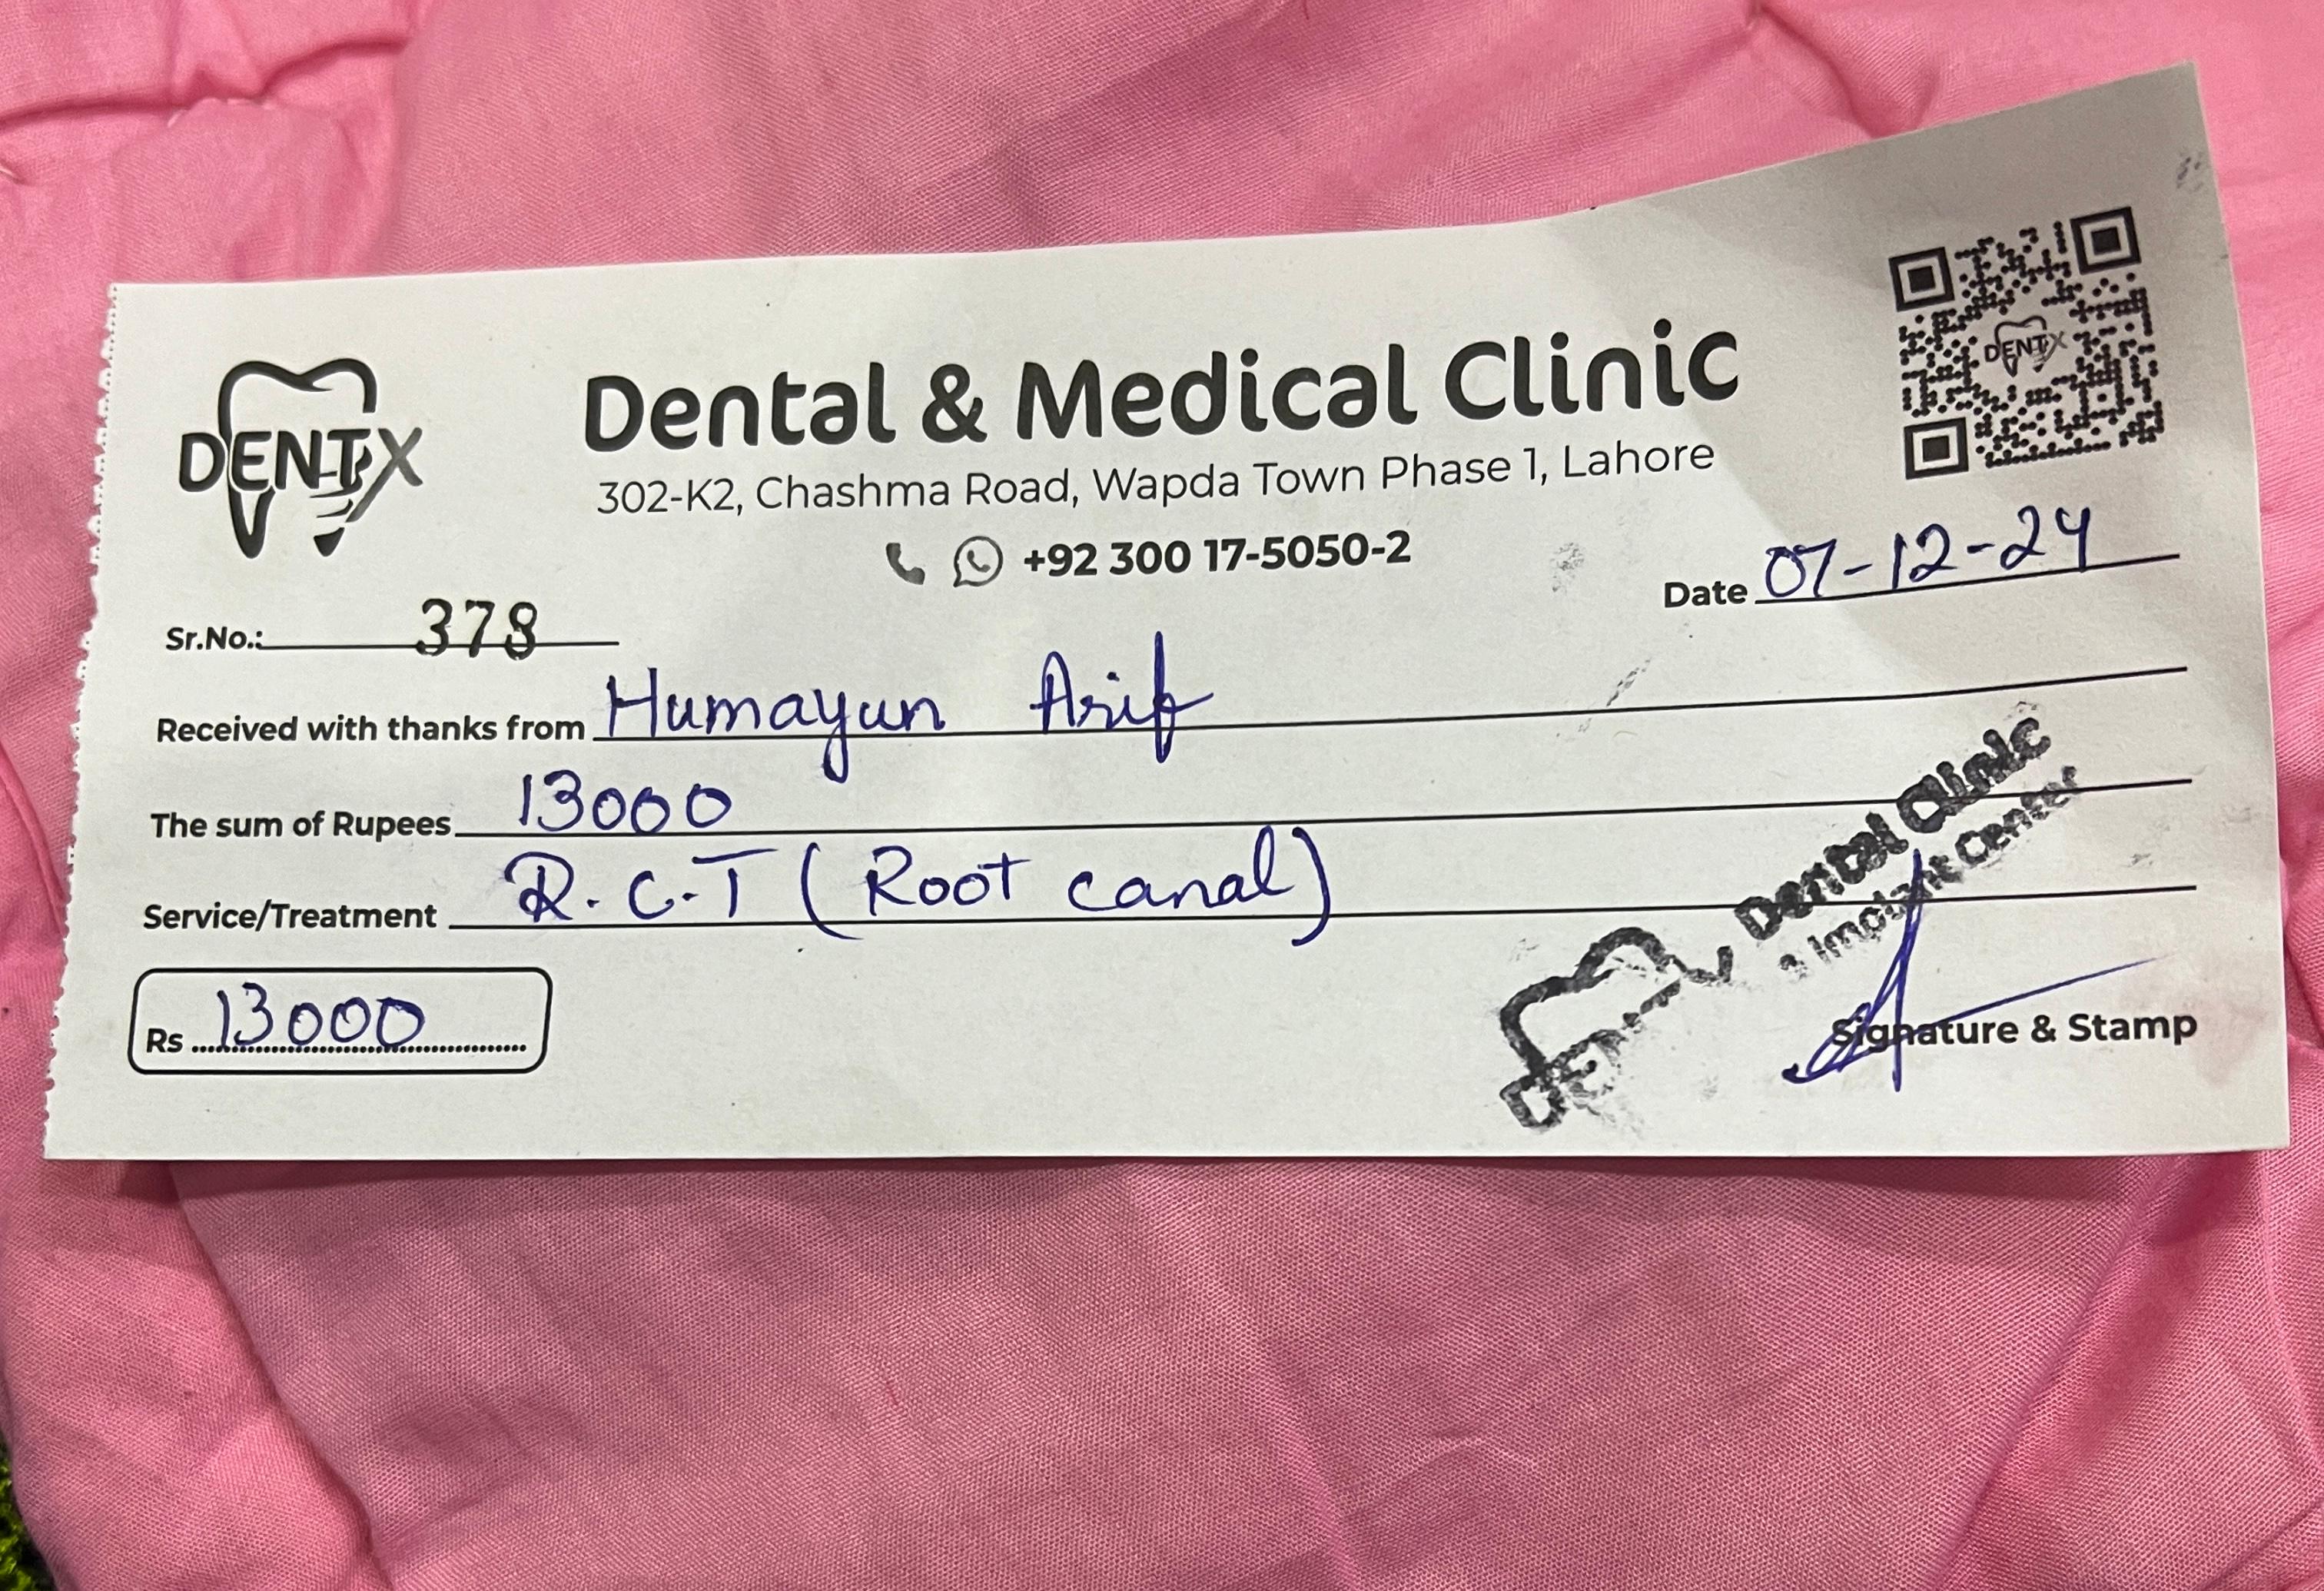 DENTX
Dental & Medical Clinic
302-K2, Chashma Road, Wapda Town Phase 1, Lahore
+92 300 17-5050-2
DENTX
Date 07-12-24
Sr.No.: 378
Received with thanks from Humayun Arif
The sum of Rupees 13000
Service/Treatment R.C.T (Root canal)
Rs 13000
Dental Clinic
& Implant Center
Signature & Stamp